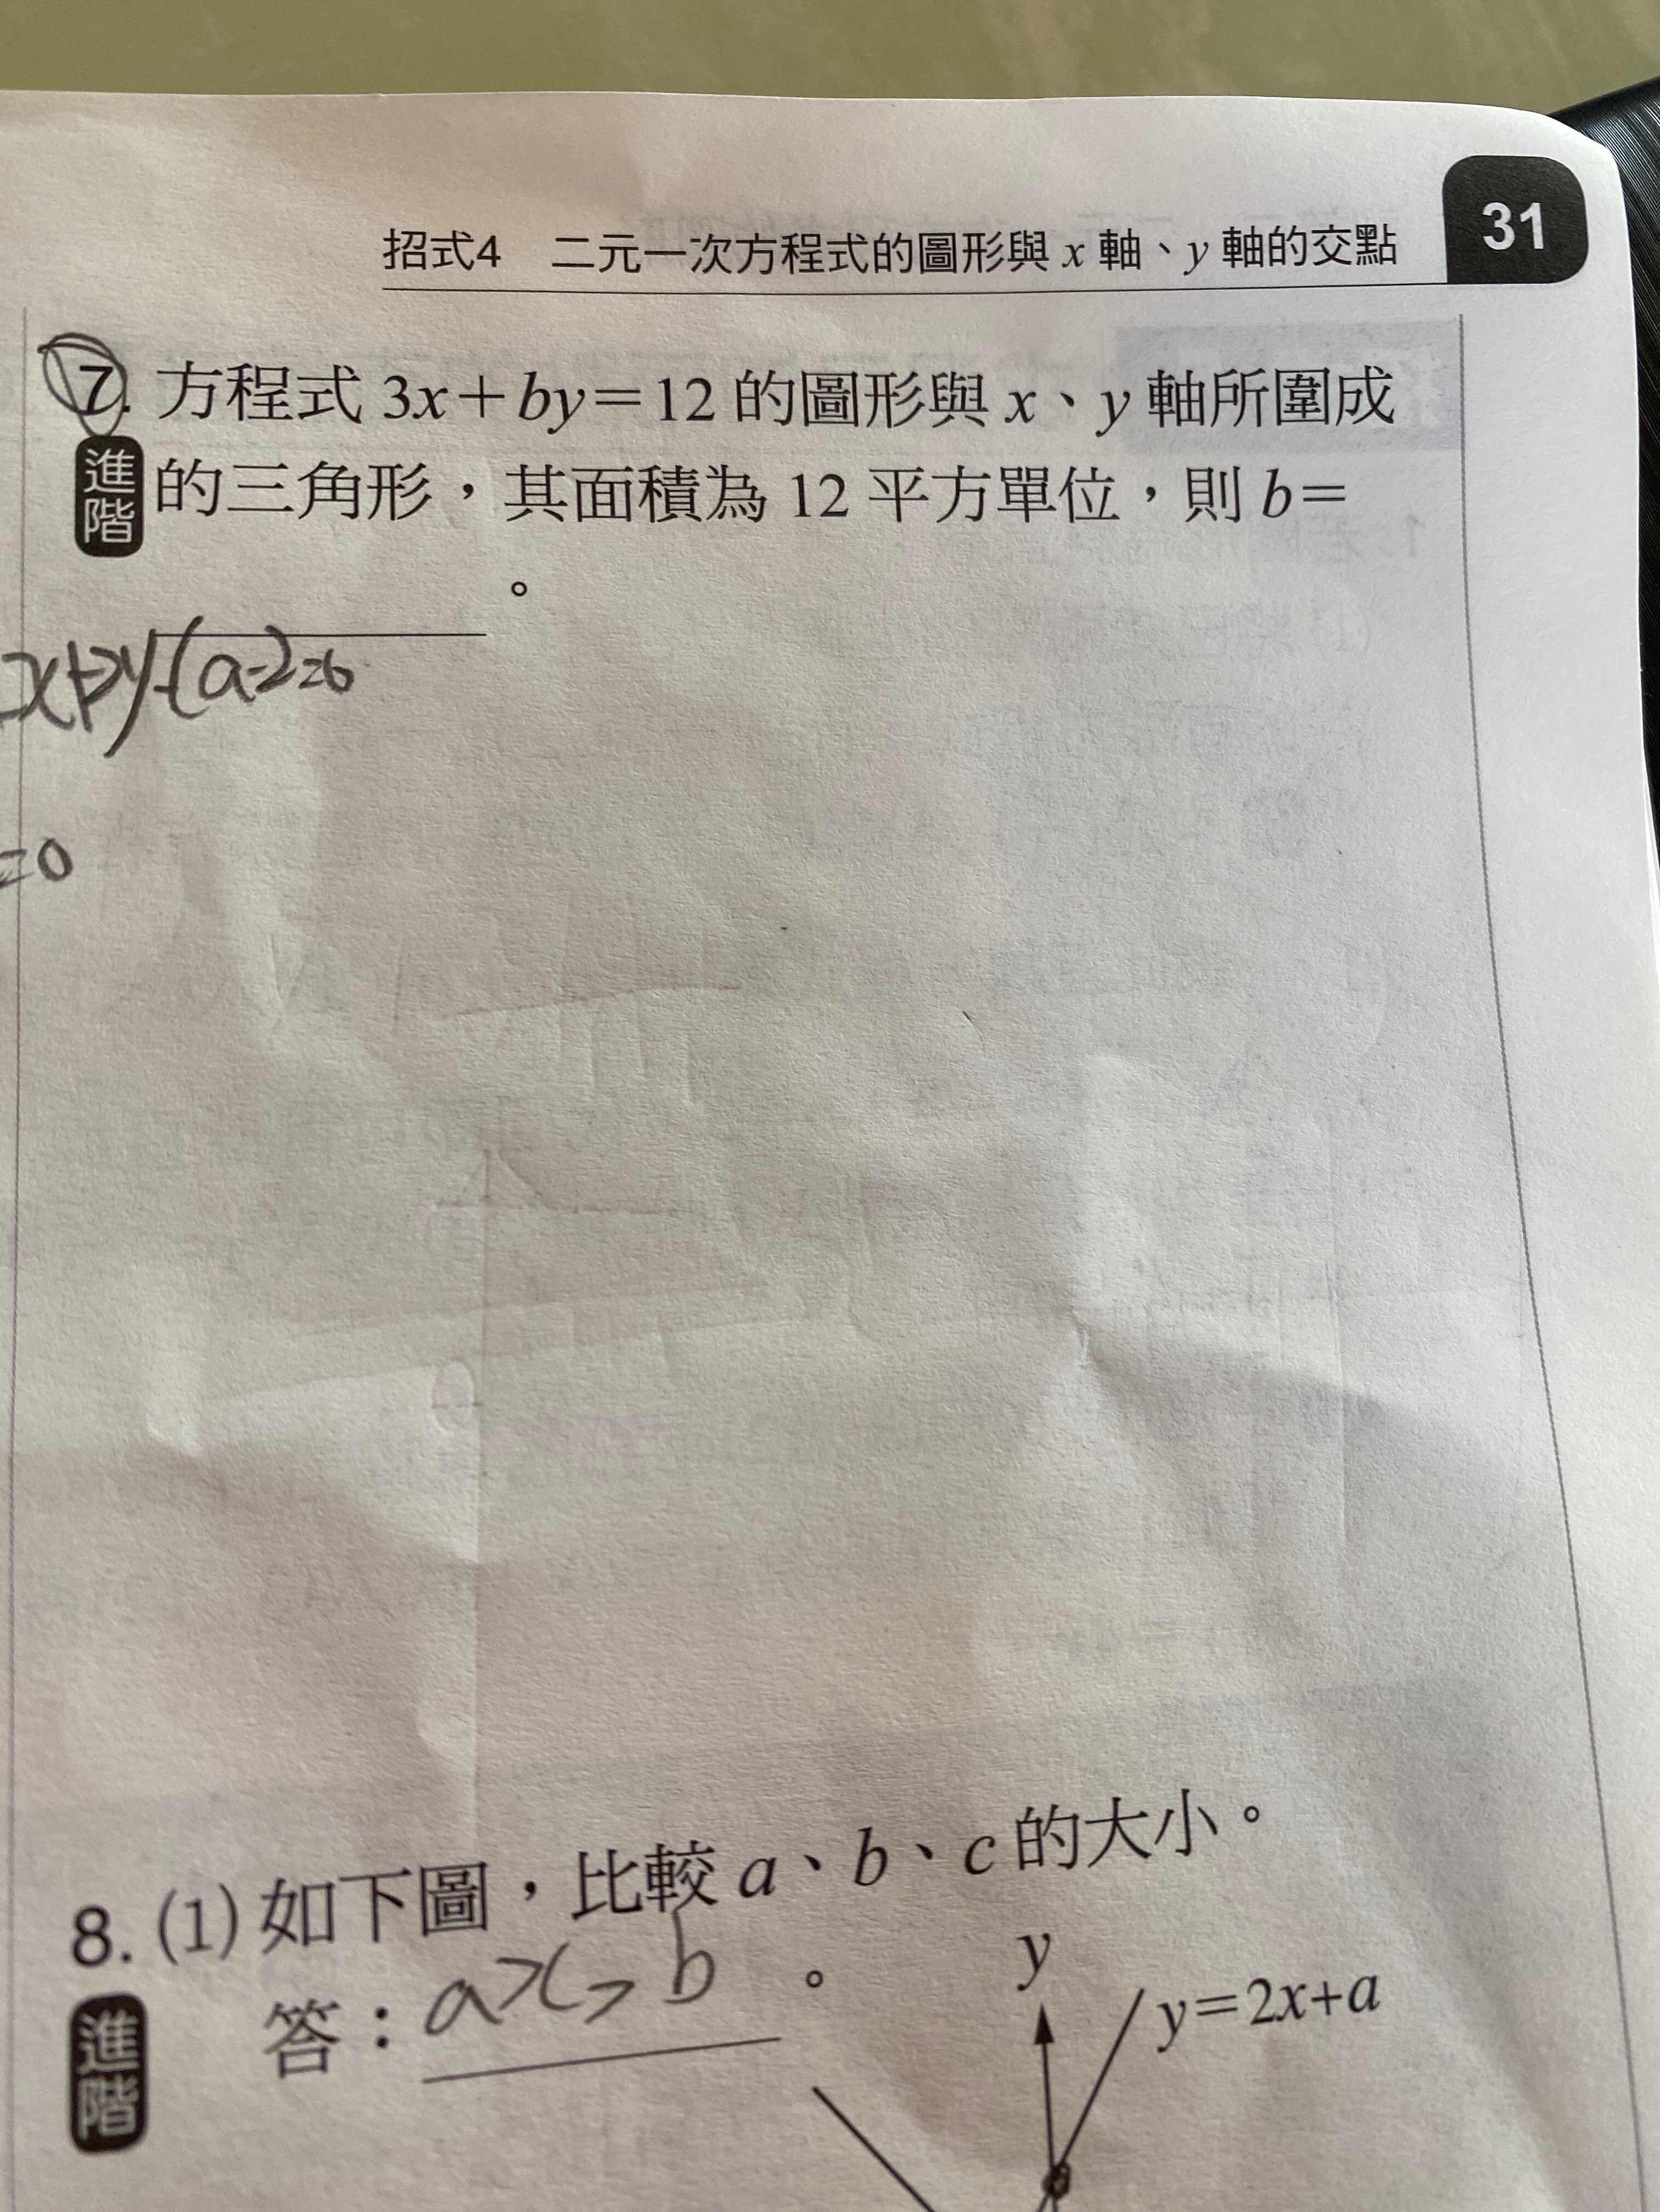 招式4 二元一次方程式的圖形與 x 軸、y 軸的交點
31
7. 方程式 3x＋by＝12 的圖形與 x、y 軸所圍成
進階
的三角形，其面積為 12 平方單位，則 b＝
。
=0
8. (1) 如下圖，比較 a、b、c 的大小。
進階
答：a>c>b。
y
y＝2x+a